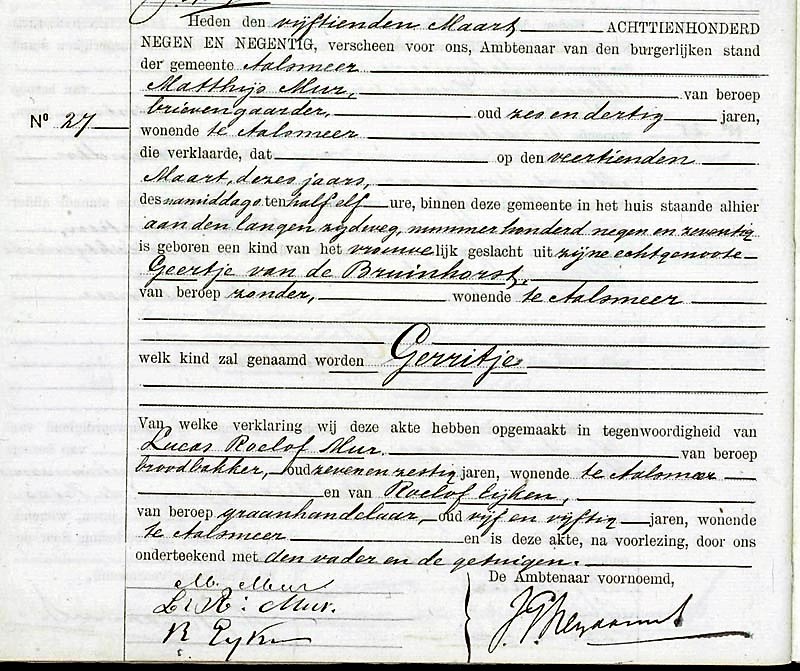 Heden den vijftienden Maart ACHTTIENHONDERD
NEGEN EN NEGENTIG, verscheen voor ons, Ambtenaar van den burgerlijken stand
der gemeente Aalsmeer
Matthijs Mur, van beroep
Nº 27
brievengaarder, oud zes en dertig jaren,
wonende te Aalsmeer
die verklaarde, dat op den veertienden
Maart, dezes jaars,
des namiddags ten half elf ure, binnen deze gemeente in het huis staande alhier
aan den langen zydweg, nummer honderd negen en zeventig
is geboren een kind van het vrouwelijk geslacht uit zijne echtgenoote
Geertje van de Bruinhorst,
van beroep zonder, wonende te Aalsmeer
welk kind zal genaamd worden Gerritje
Van welke verklaring wij deze akte hebben opgemaakt in tegenwoordigheid van
Lucas Roelof Mur van beroep
broodbakker, oud zeven en zestig jaren, wonende te Aalsmeer
en van Roelof Eijken,
van beroep graanhandelaar, oud vijf en vijftig jaren, wonende
te Aalsmeer en is deze akte, na voorlezing, door ons
onderteekend met den vader en de getuigen.
De Ambtenaar voornoemd,
M. Mur
L. R. Mur.
R Eyken